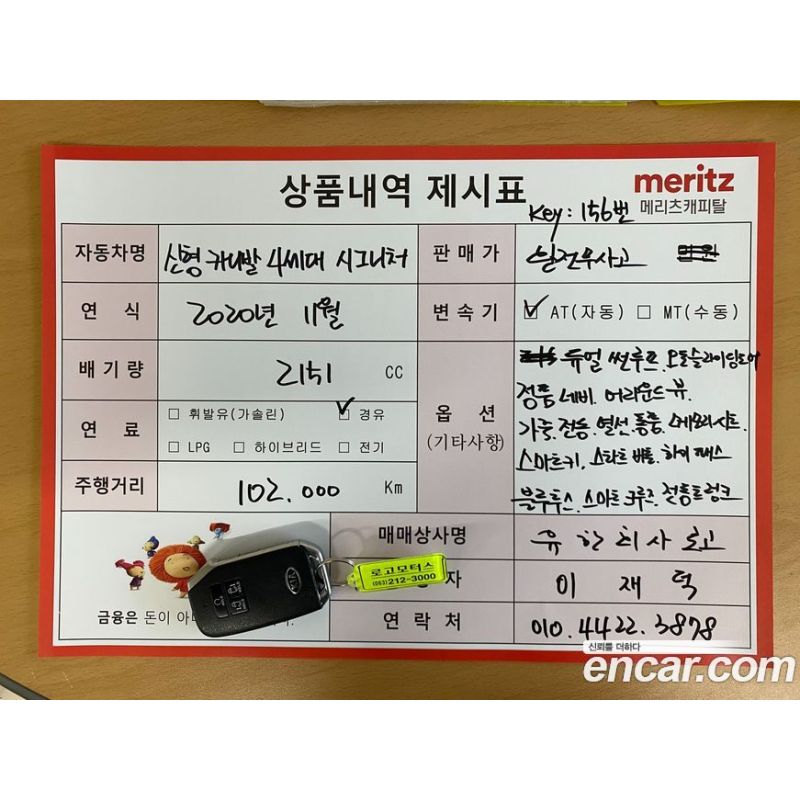 상품내역 제시표
meritz
메리츠캐피탈
Key : 156번
자동차명 신형 카니발 4세대 시그니처
판매가 완전무사고 만원
연식 2020년 11월
변속기 ☑ AT(자동) ☐ MT(수동)
배기량 2151 CC
연료 ☐ 휘발유(가솔린) ☑ 경유
☐ LPG ☐ 하이브리드 ☐ 전기
주행거리 102.000 Km
옵션
(기타사항)
듀얼 썬루프. 오토슬라이딩도어
정품 네비. 어라운드 뷰.
가죽.전동.열선.통풍.메모리시트.
스마트키. 스타트 버튼. 하이패스
블루투스. 스마트 크루즈. 전동트렁크
매매상사명 유한회사 로고
자 이재덕
연락처 010.4422.3878
금융은 돈이 아
KIA
로고모터스
(063)212-3000
신뢰를 더하다
encar.com